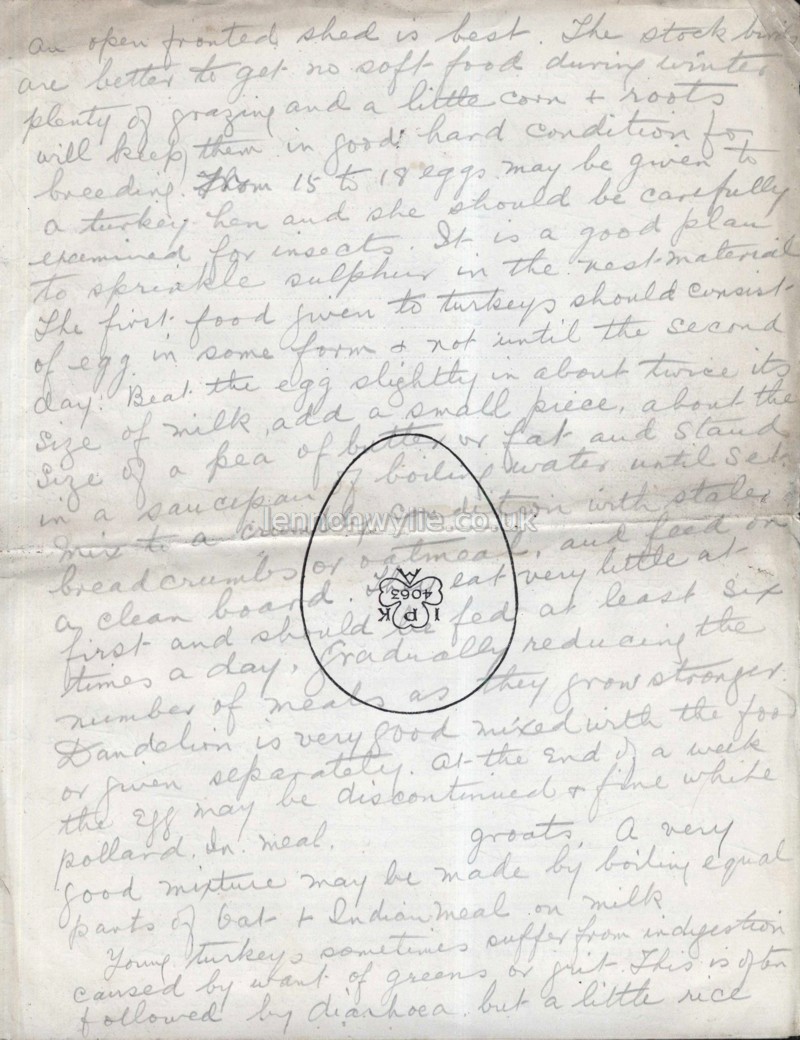 an open fronted shed is best. The stock birds
are better to get no soft food during winter
plenty of grazing and a little corn + roots
will keep them in good hard condition for
breeding. From 15 to 18 eggs may be given to
a turkey hen and she should be carefully
examined for insects. It is a good plan
to sprinkle sulphur in the nest material
The first food given to turkeys should consist
of egg in some form + not until the second
day. Beat the egg slightly in about twice its
size of milk, add a small piece, about the
size of a pea of butter or fat and stand
in a saucepan of boiling water until set.
Mix to a crumbly condition with stale
lennonwylie.co.uk
breadcrumbs or oatmeal, and feed on
a clean board. They eat very little at
first and should be fed at least six
times a day, Gradually reducing the
number of meals as they grow stronger.
Dandelion is very good mixed with the food
or given separately. At the end of a week
the egg may be discontinued + fine white
pollard, In. meal. groats, A very
good mixture may be made by boiling equal
parts of Oat + Indian meal on milk
Young turkeys sometimes suffer from indigestion
caused by want of greens or grit. This is often
followed by diarhoea but a little rice
I P K A
4063